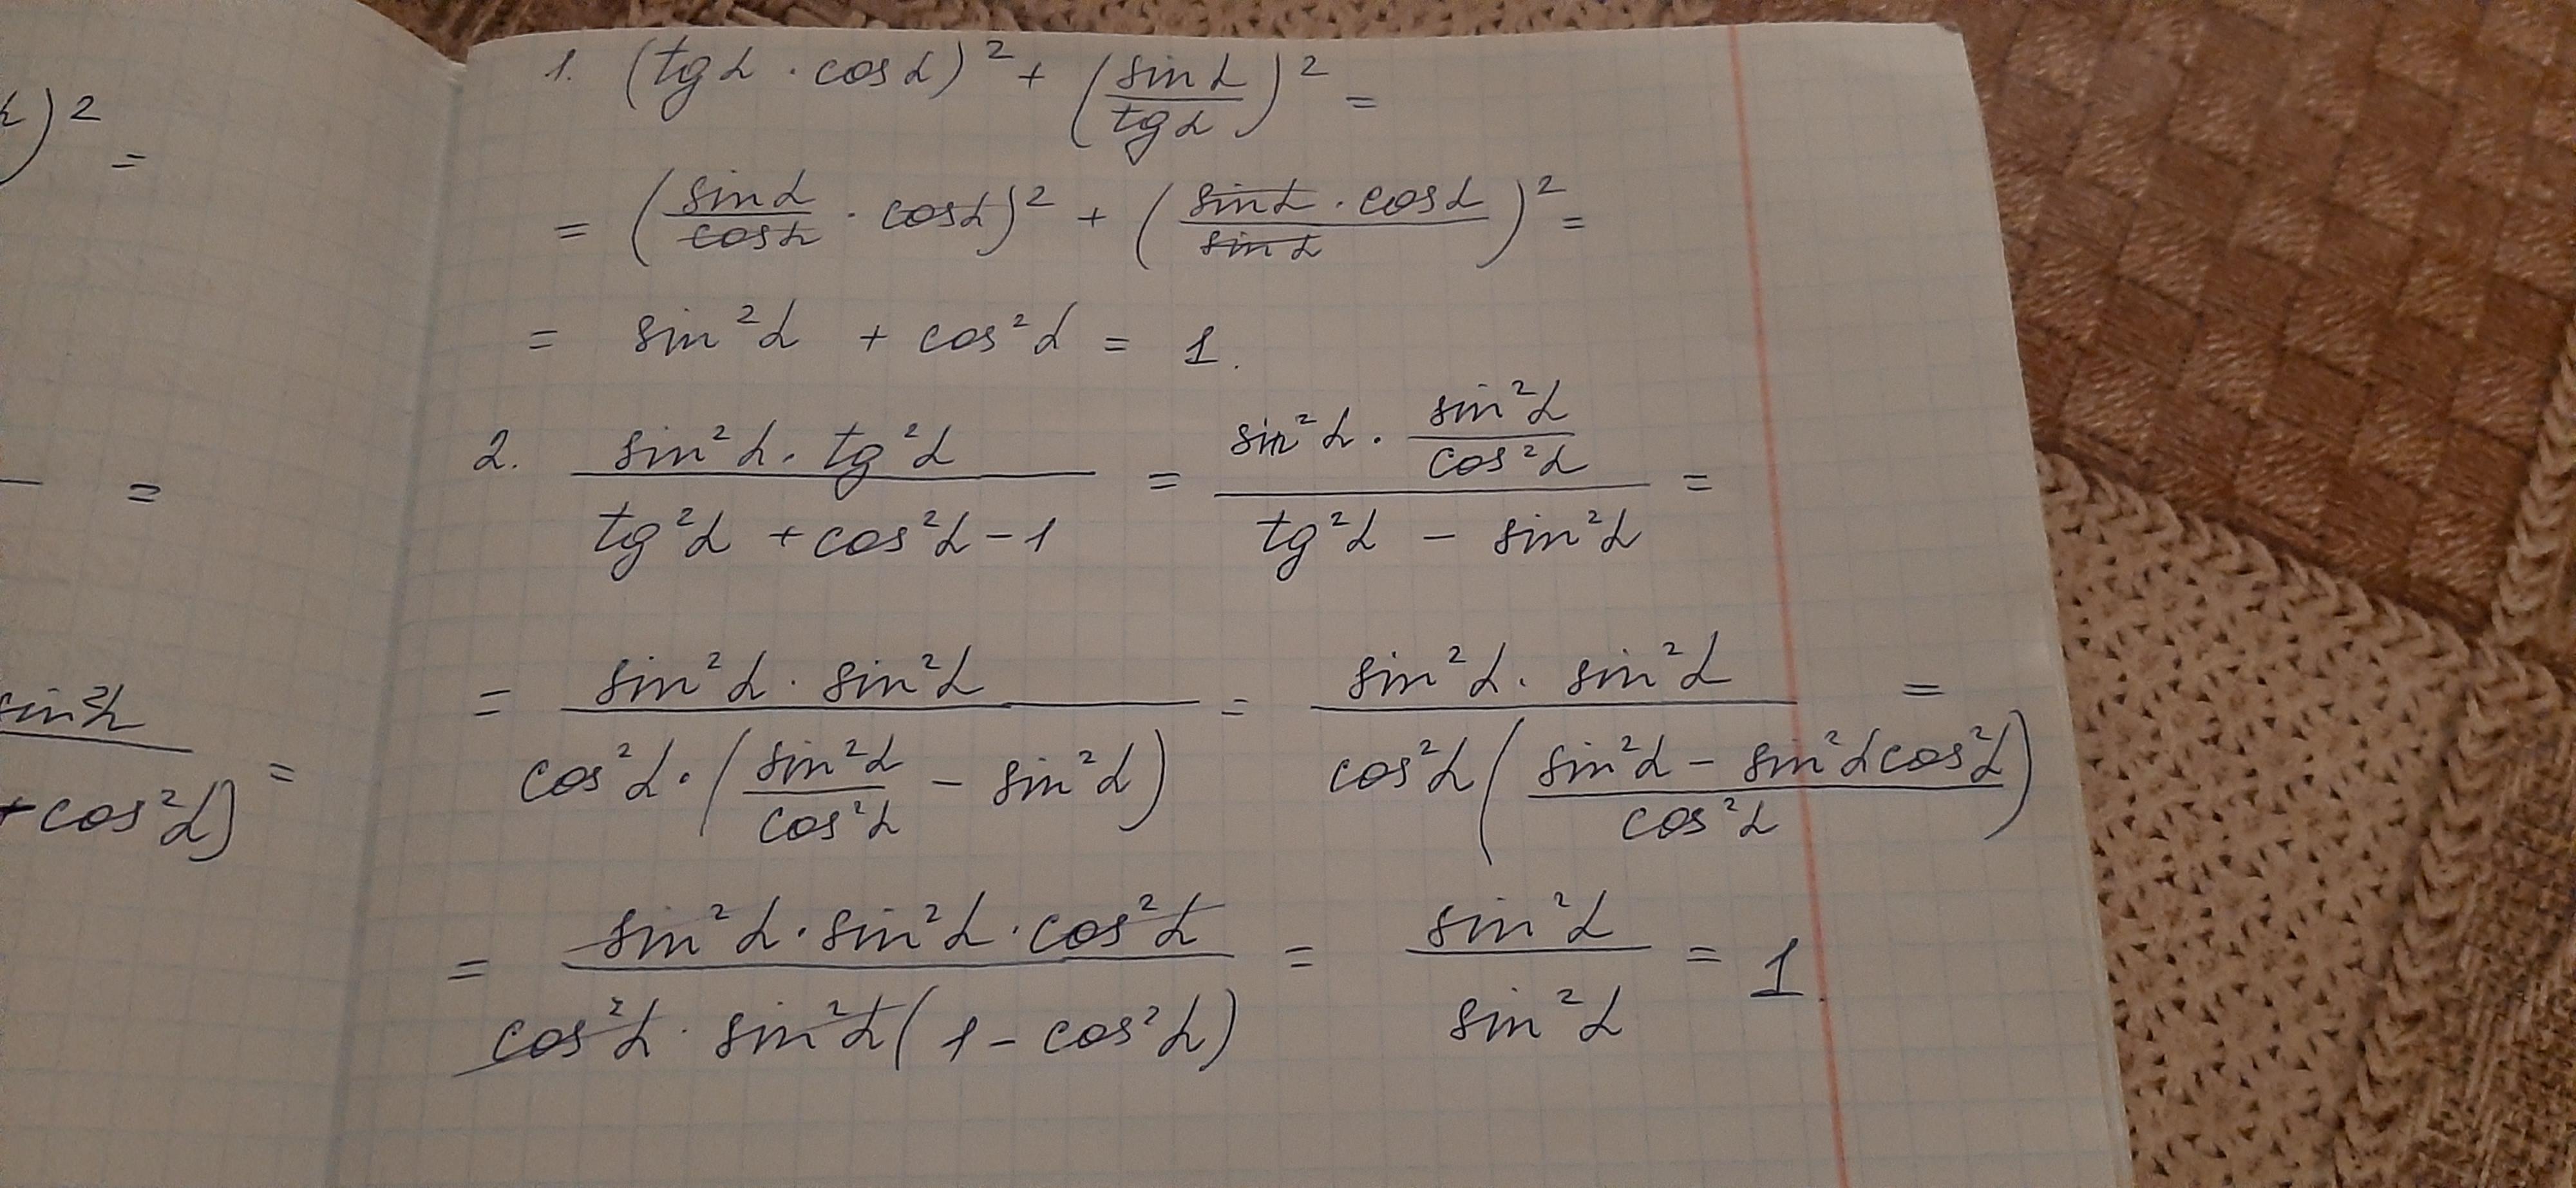 α)² =
=
sin²α
+cos²α) =
1. (tgα · cosα)² + (sinα/tgα)² =
= (sinα/cosα · cosα)² + (sinα · cosα/sinα)² =
= sin²α + cos²α = 1.
2. sin²α · tg²α / tg²α + cos²α - 1 = sin²α · sin²α/cos²α / tg²α - sin²α =
= sin²α · sin²α / cos²α · (sin²α/cos²α - sin²α) = sin²α · sin²α / cos²α (sin²α - sin²α cos²α / cos²α) =
= sin²α · sin²α · cos²α / cos²α · sin²α (1 - cos²α) = sin²α / sin²α = 1.